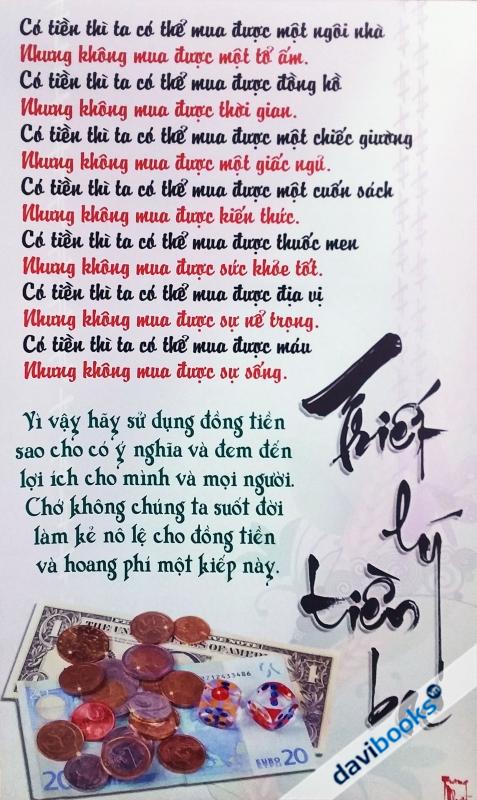 Có tiền thì ta có thể mua được một ngôi nhà
Nhưng không mua được một tổ ấm.
Có tiền thì ta có thể mua được đồng hồ
Nhưng không mua được thời gian.
Có tiền thì ta có thể mua được một chiếc giường
Nhưng không mua được một giấc ngủ.
Có tiền thì ta có thể mua được một cuốn sách
Nhưng không mua được kiến thức.
Có tiền thì ta có thể mua được thuốc men
Nhưng không mua được sức khỏe tốt.
Có tiền thì ta có thể mua được địa vị
Nhưng không mua được sự nể trọng.
Có tiền thì ta có thể mua được máu
Nhưng không mua được sự sống.
Vì vậy hãy sử dụng đồng tiền
sao cho có ý nghĩa và đem đến
lợi ích cho mình và mọi người.
Chớ không chúng ta suốt đời
làm kẻ nô lệ cho đồng tiền
và hoang phí một kiếp này.
Triết
lý
tiền
bạc
1
THE UNITED STATES
1
20
EURO 20
davibooks